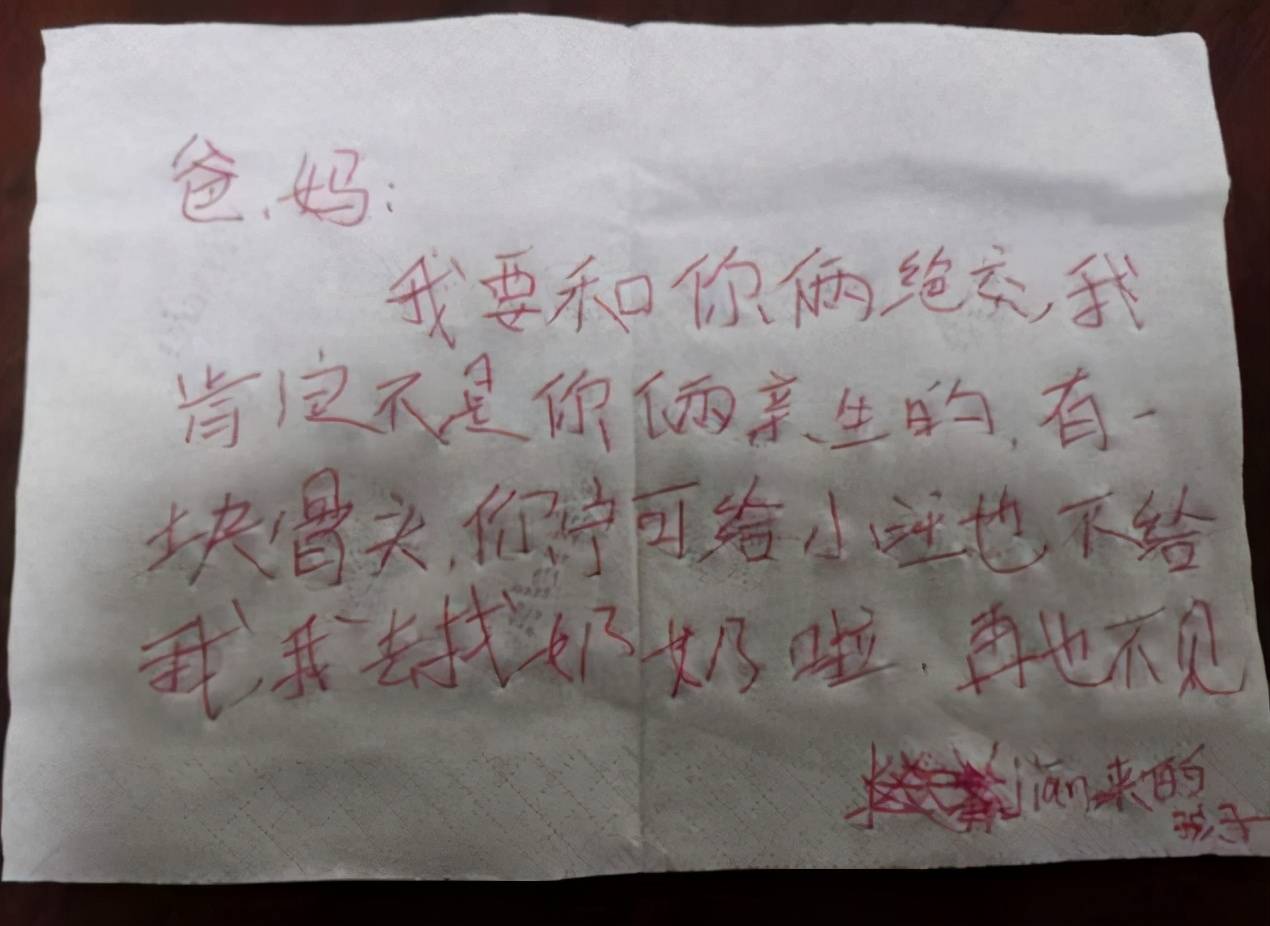 爸、妈：
我要和你俩绝交，我
肯定不是你俩亲生的，有一
块骨头，你宁可给小旺也不给
我，我去找奶奶啦．再也不见
jian来的
孩子